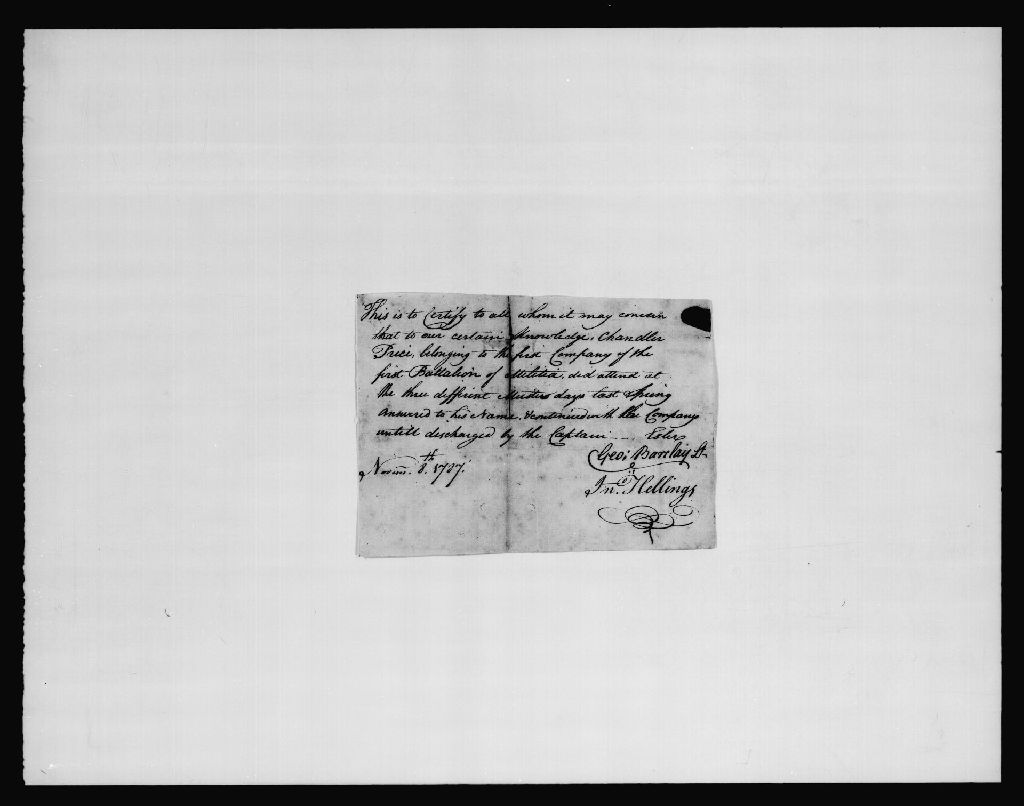 This is to Certify to all whom it may concern
that to our certain Knowledge, Chandler
Price, belonging to the first Company of the
first Battalion of Militia, did attend at
the three different Musters days last Spring
answered to his Name, & continued with the Company
untill discharged by the Captain
Geo: Barclay Lt
Novem. 8.th 1787.
Jno. Hellings